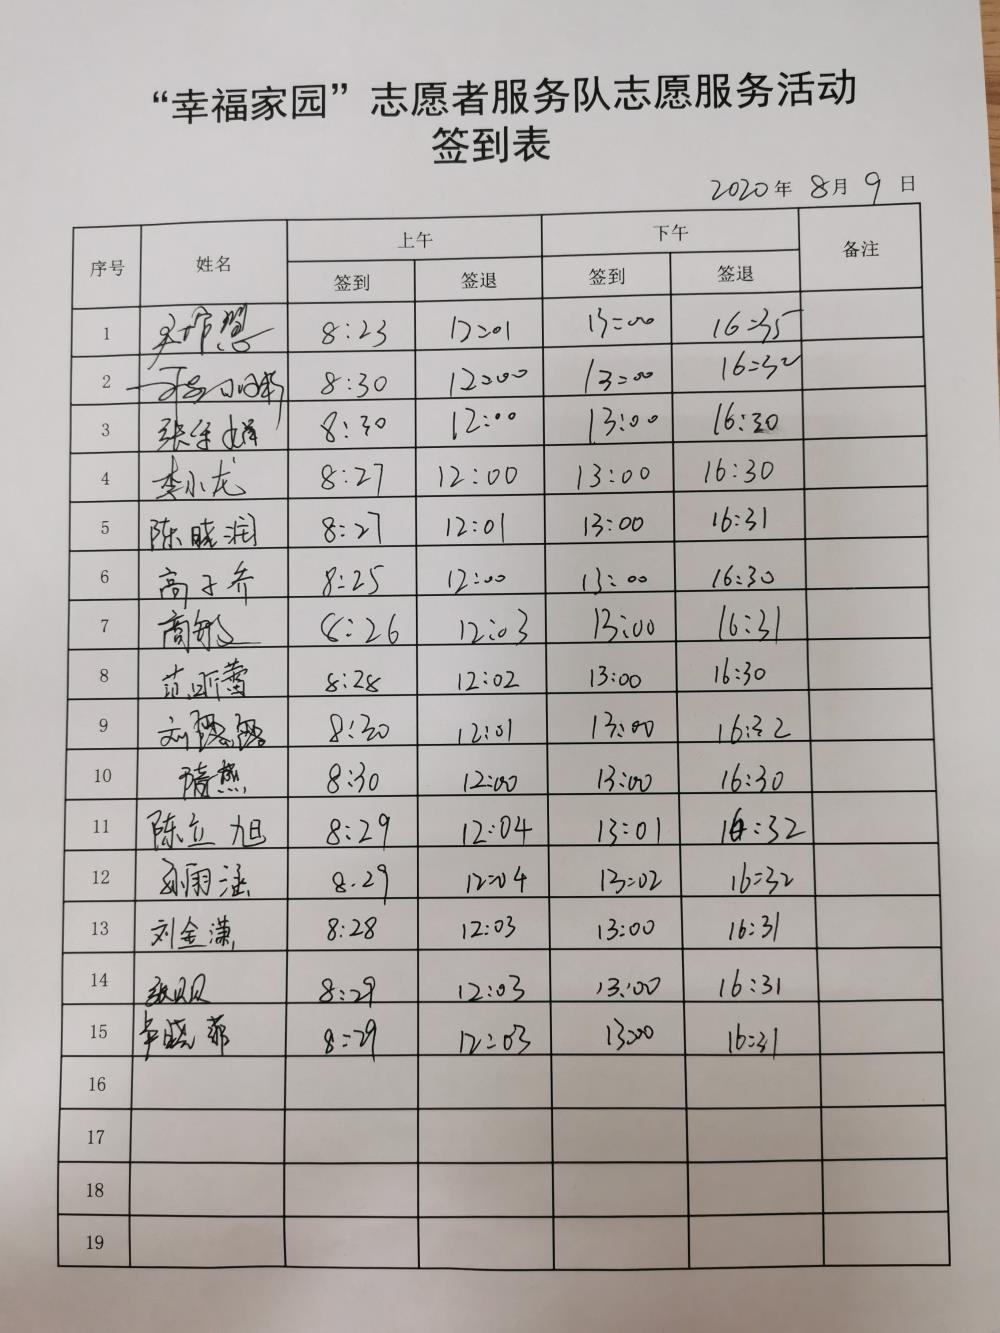 “幸福家园”志愿者服务队志愿服务活动
签到表
2020年 8月 9 日
序号 姓名 上午 下午 备注
签到 签退 签到 签退
1 8:23 12:01 13:00 16:35
2 8:30 12:00 13:00 16:32
3 张 8:30 12:00 13:00 16:30
4 李小龙 8:27 12:00 13:00 16:30
5 陈晓润 8:27 12:01 13:00 16:31
6 高子乔 8:25 12:00 13:00 16:30
7 高 8:26 12:03 13:00 16:31
8 范昕蕾 8:28 12:02 13:00 16:30
9 刘露露 8:30 12:01 13:00 16:32
10 隋燕 8:30 12:00 13:00 16:30
11 陈立旭 8:29 12:04 13:01 16:32
12 孙雨涵 8.29 12:04 13:02 16:32
13 刘金潇 8:28 12:03 13:00 16:31
14 张贝贝 8:29 12:03 13:00 16:31
15 晓菲 8:29 12:03 13:00 16:31
16
17
18
19